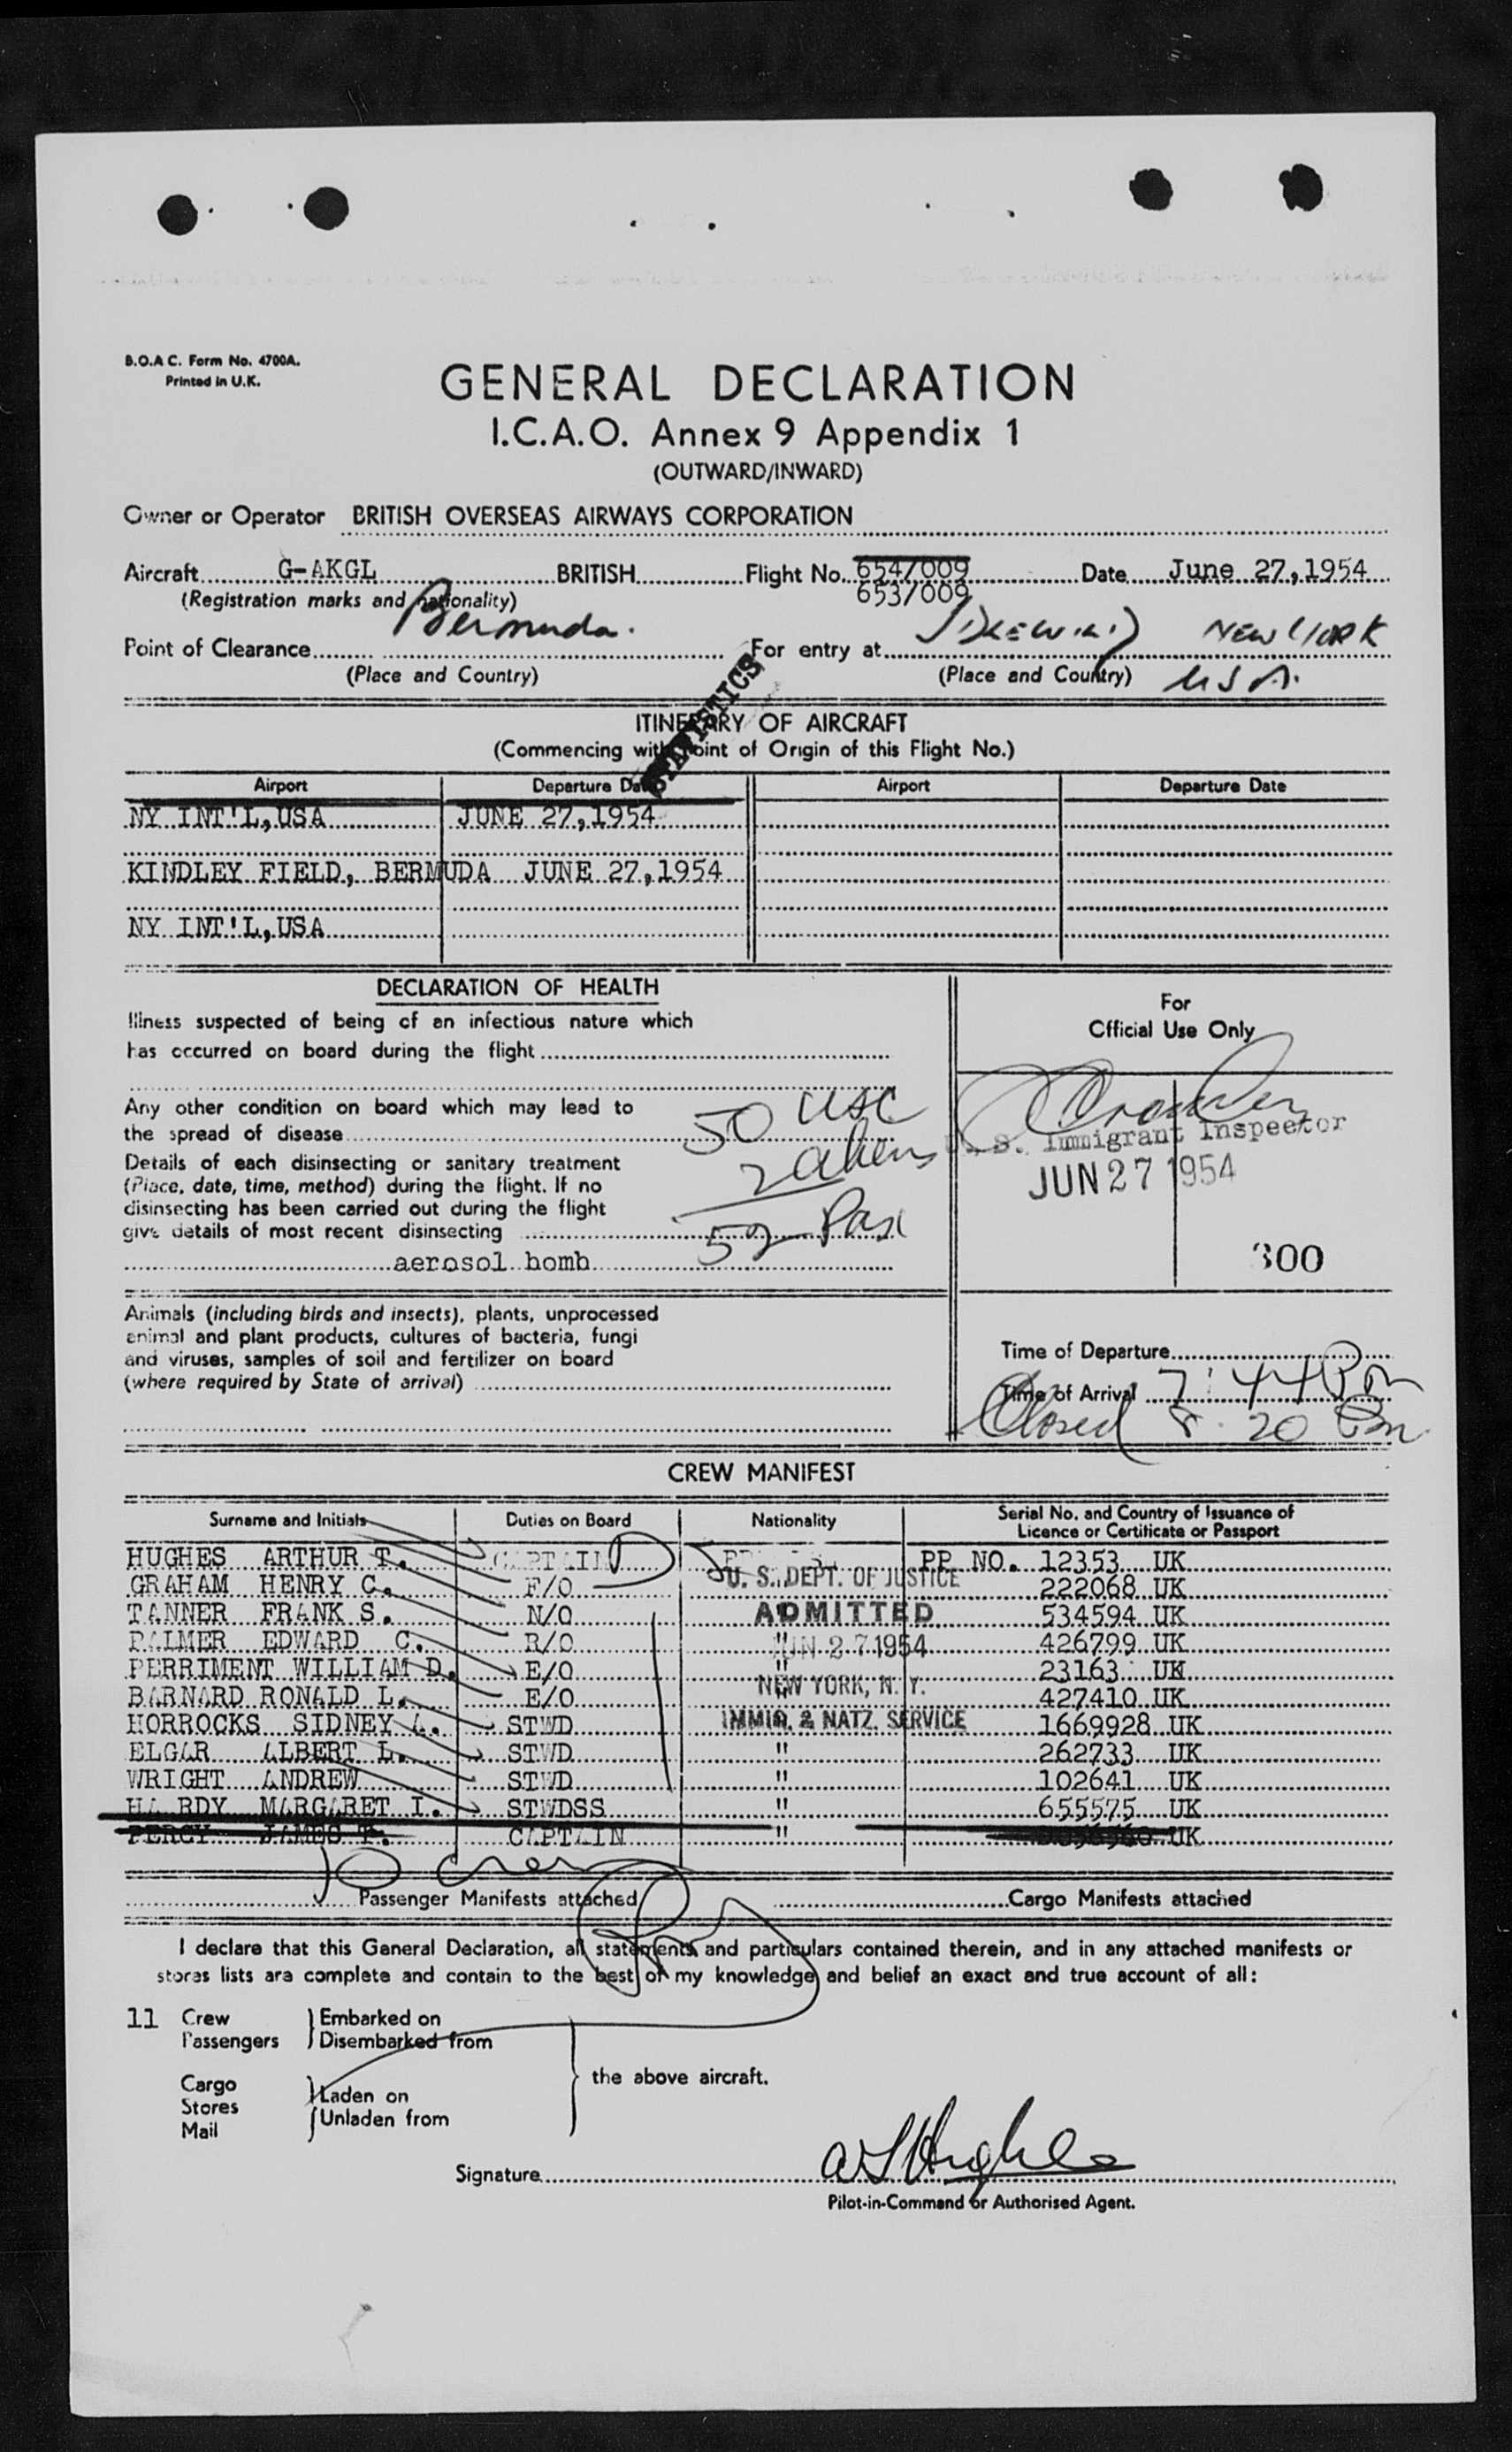 B.O.A C. Form No. 4700A.
Printed in U.K.
GENERAL DECLARATION
I.C.A.O. Annex 9 Appendix 1
(OUTWARD/INWARD)
Owner or Operator BRITISH OVERSEAS AIRWAYS CORPORATION
Aircraft G-AKGL BRITISH Flight No. 654/009 Date June 27,1954
(Registration marks and nationality) 653/009
Bermuda. IDLEWILD NEW YORK
Point of Clearance For entry at
(Place and Country) (Place and Country) USA.
STATISTICS
ITINERARY OF AIRCRAFT
(Commencing with Point of Origin of this Flight No.)
Airport Departure Date Airport Departure Date
NY INT'L,USA JUNE 27,1954
KINDLEY FIELD, BERMUDA JUNE 27,1954
NY INT'L,USA
DECLARATION OF HEALTH
Illness suspected of being of an infectious nature which
has occurred on board during the flight
Any other condition on board which may lead to
the spread of disease
Details of each disinsecting or sanitary treatment
(Place, date, time, method) during the flight. If no
disinsecting has been carried out during the flight
give details of most recent disinsecting
aerosol bomb
50 USC
2 aliens
52 Pax
For
Official Use Only
U. S. Immigrant Inspector
JUN 27 1954
300
Animals (including birds and insects), plants, unprocessed
animal and plant products, cultures of bacteria, fungi
and viruses, samples of soil and fertilizer on board
(where required by State of arrival)
Time of Departure
Time of Arrival 7:44 Pm
Closed 8.20 Pm
CREW MANIFEST
Surname and Initials Duties on Board Nationality Serial No. and Country of Issuance of
Licence or Certificate or Passport
HUGHES ARTHUR T. CAPTAIN PP NO. 12353 UK
GRAHAM HENRY C. F/O 222068 UK
TANNER FRANK S. N/O 534594 UK
PALMER EDWARD C. R/O " 426799 UK
PERRIMENT WILLIAM D. E/O " 23163 UK
BARNARD RONALD L. E/O " 427410 UK
HORROCKS SIDNEY A. STWD 1669928 UK
ELGAR ALBERT L. STWD " 262733 UK
WRIGHT ANDREW STWD " 102641 UK
HARDY MARGARET I. STWDSS " 655575 UK
PERCY JAMES T. CAPTAIN " UK
U. S. DEPT. OF JUSTICE
ADMITTED
JUN 27 1954
NEW YORK, N. Y.
IMMIG. & NATZ. SERVICE
10 Crew
Passenger Manifests attached Cargo Manifests attached
I declare that this General Declaration, all statements and particulars contained therein, and in any attached manifests or
stores lists are complete and contain to the best of my knowledge and belief an exact and true account of all:
11 Crew Embarked on
Passengers Disembarked from
the above aircraft.
Cargo
Laden on
Stores
Unladen from
Mail
Signature A T Hughes
Pilot-in-Command or Authorised Agent.